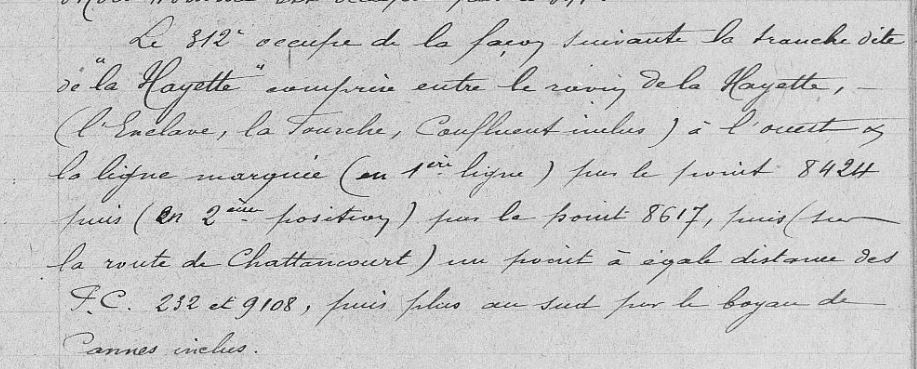 Le 312e occupe de la façon suivante la tranche dite
de "la Hayette" comprise entre le ravin de la Hayette, -
(l'Enclave, la Fourche, Confluent inclus) à l'ouest &
la ligne marquée (en 1ère ligne) par le point 8424
puis (en 2ème position) par le point 8617, puis (sur
la route de Chattancourt) un point à égale distance des
P.C. 232 et 9108, puis plus au sud par le boyau de
Cannes inclus.